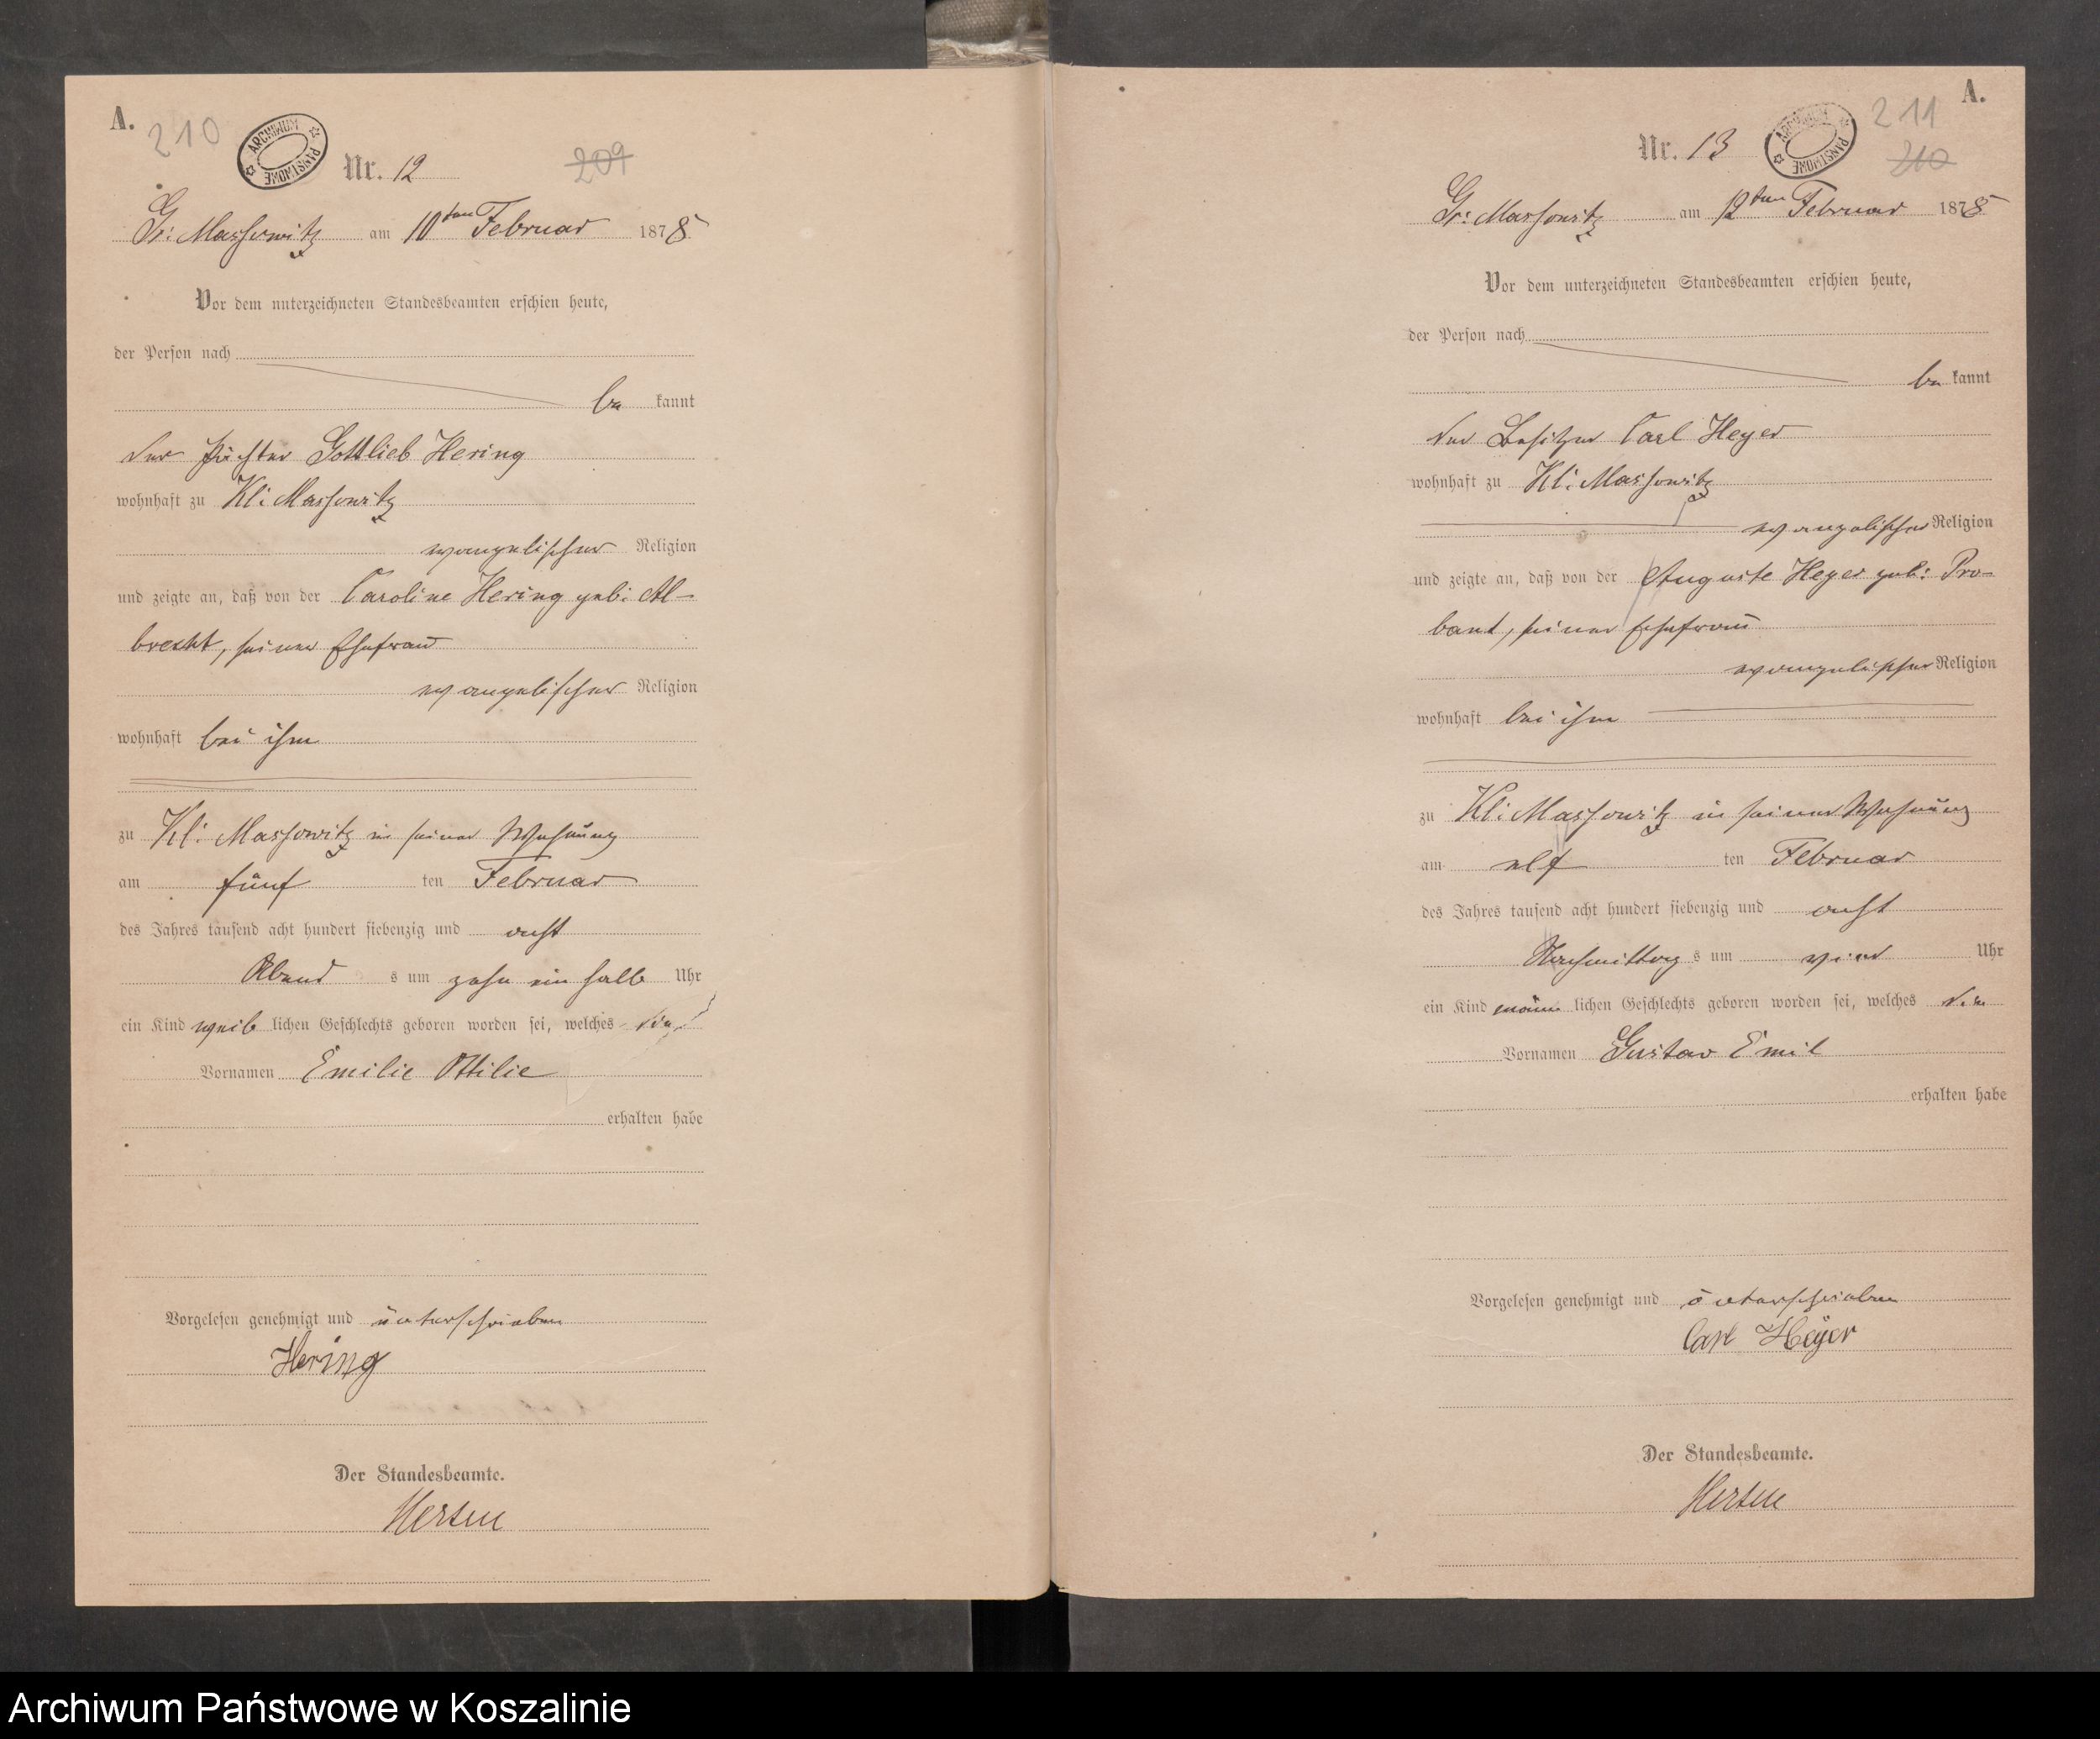 A.
210
ARCHIWUM PAŃSTWOWE
Nr. 12
209
Gr: Massowitz am 10ten Februar 1878
Vor dem unterzeichneten Standesbeamten erschien heute,
der Person nach
be kannt
der Pächter Gottlieb Hering
wohnhaft zu Kl: Massowitz
evangelischer Religion
und zeigte an, daß von der Caroline Hering geb: Al-
brecht, seiner Ehefrau
evangelischer Religion
wohnhaft bei ihm
zu Kl: Massowitz in seiner Wohnung
am fünf ten Februar
des Jahres tausend acht hundert siebenzig und acht
Abend s um zehn ein halb Uhr
ein Kind weib lichen Geschlechts geboren worden sei, welches die
Vornamen Emilie Ottilie
erhalten habe
Vorgelesen genehmigt und unterschrieben
Hering
Der Standesbeamte.
A.
211
ARCHIWUM PAŃSTWOWE
Nr. 13
210
Gr: Massowitz am 12ten Februar 1878
Vor dem unterzeichneten Standesbeamten erschien heute,
der Person nach
be kannt
der Besitzer Carl Heyer
wohnhaft zu Kl: Massowitz
evangelischer Religion
und zeigte an, daß von der Auguste Heyer geb: Pro-
bant, seiner Ehefrau
evangelischer Religion
wohnhaft bei ihm
zu Kl: Massowitz in seiner Wohnung
am elf ten Februar
des Jahres tausend acht hundert siebenzig und acht
Nachmittag s um vier Uhr
ein Kind männ lichen Geschlechts geboren worden sei, welches die
Vornamen Gustav Emil
erhalten habe
Vorgelesen genehmigt und unterschrieben
Carl Heyer
Der Standesbeamte.
Archiwum Państwowe w Koszalinie